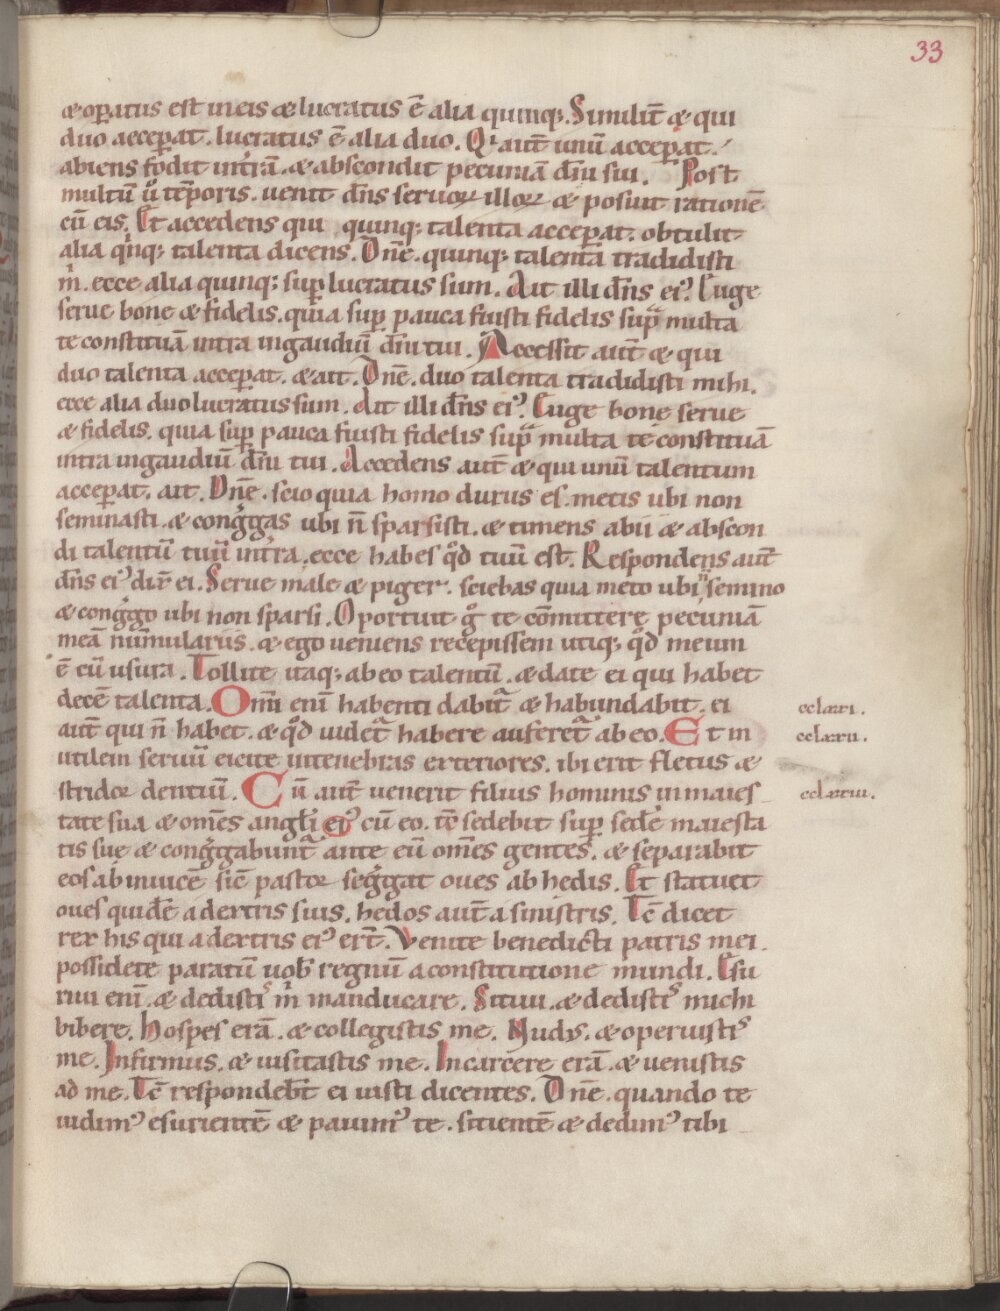 33
& op̄atus est in eis & lucratus ē alia quinq;. Similit̄ & qui
duo accep̄at. lucratus ē alia duo. Qi aut̄ unū accep̄at.
abiens fodit in t̄rā. & abscondit pecuniā dn̄i sui. Post
multū ū tēporis. uenit dn̄s seruoꝝ illoꝝ & posuit rationē
cū eis. Et accedens qui quinq; talenta accep̄at. obtulit
alia qinq; talenta dicens. Dn̄e. quinq; talenta tradidisti
m̄. ecce alia quinq; sup̄ lucratus sum. Ait illi dn̄s ei᾽. Euge
serue bone & fidelis. quia sup̄ pauca fuisti fidelis sup̄ multa
te constituā intra in gaudiū dn̄i tui. Accessit aut̄ & qui
duo talenta accep̄at. & ait. Dn̄e. duo talenta tradidisti mihi.
ecce alia duo lucratus sum. Ait illi dn̄s ei᾽. Euge bone serue
& fidelis. quia sup̄ pauca fuisti fidelis sup̄ multa te constituā
intra in gaudiū dn̄i tui. Accedens aut̄ & qui unū talentum
accep̄at. ait. Dn̄e. scio quia homo durus es. metis ubi non
seminasti. & congͣgas ubi n̄ sparsisti. & timens abii & abscon
di talentū tuū in t̄ra. ecce habes qd̄ tuū est. Respondens aut̄
dn̄s ei᾽ dix̄ ei. Serue male & piger. sciebas quia meto ubi n̄ semino
& congͣgo ubi non sparsi. Oportuit gͦ te cōmittere pecuniā
meā nūmulariis. & ego ueniens recepissem utiq; qd̄ meum
ē cū usura. Tollite itaq; ab eo talentū. & date ei qui habet
decē talenta. Om̄i eni habenti dabit̄ & habundabit. ei
aut̄ qui n̄ habet. & qd̄ uidet̄ habere auferet̄ ab eo. Et in
cclxxi.
cclxxii.
utilem seruū eicite in tenebras exteriores. ibi erit fletus &
stridor dentiū. Cū aut̄ uenerit filius hominis in maies
cclxxiii.
tate sua & om̄es angl̄i ei᾽ cū eo. tc̄ sedebit sup̄ sedē maiesta
tis suę & congͣgabunt̄ ante eū om̄es gentes. & separabit
eos ab inuicē sic̄ pastor segͣgat oues ab hedis. Et statuet
oues quidē a dextris suis. hedos aut̄ a sinistris. Tc̄ dicet
rex his qui a dextris ei᾽ er̄t. Venite benedicti patris mei.
possidete paratū uob̄ regnū a constitutione mundi. Esu
riui eni. & dedistis m̄ manducare. Sitiui. & dedistis michi
bibere. hospes erā. & collegistis me. Nudus. & operuistis
me. Infirmus. & uisitastis me. In carcere erā. & uenistis
ad me. Tc̄ respondeb̄t ei iusti dicentes. Dn̄e. quando te
uidim᾽ esurientē & pauim᾽ te. sitientē & dedim᾽ tibi